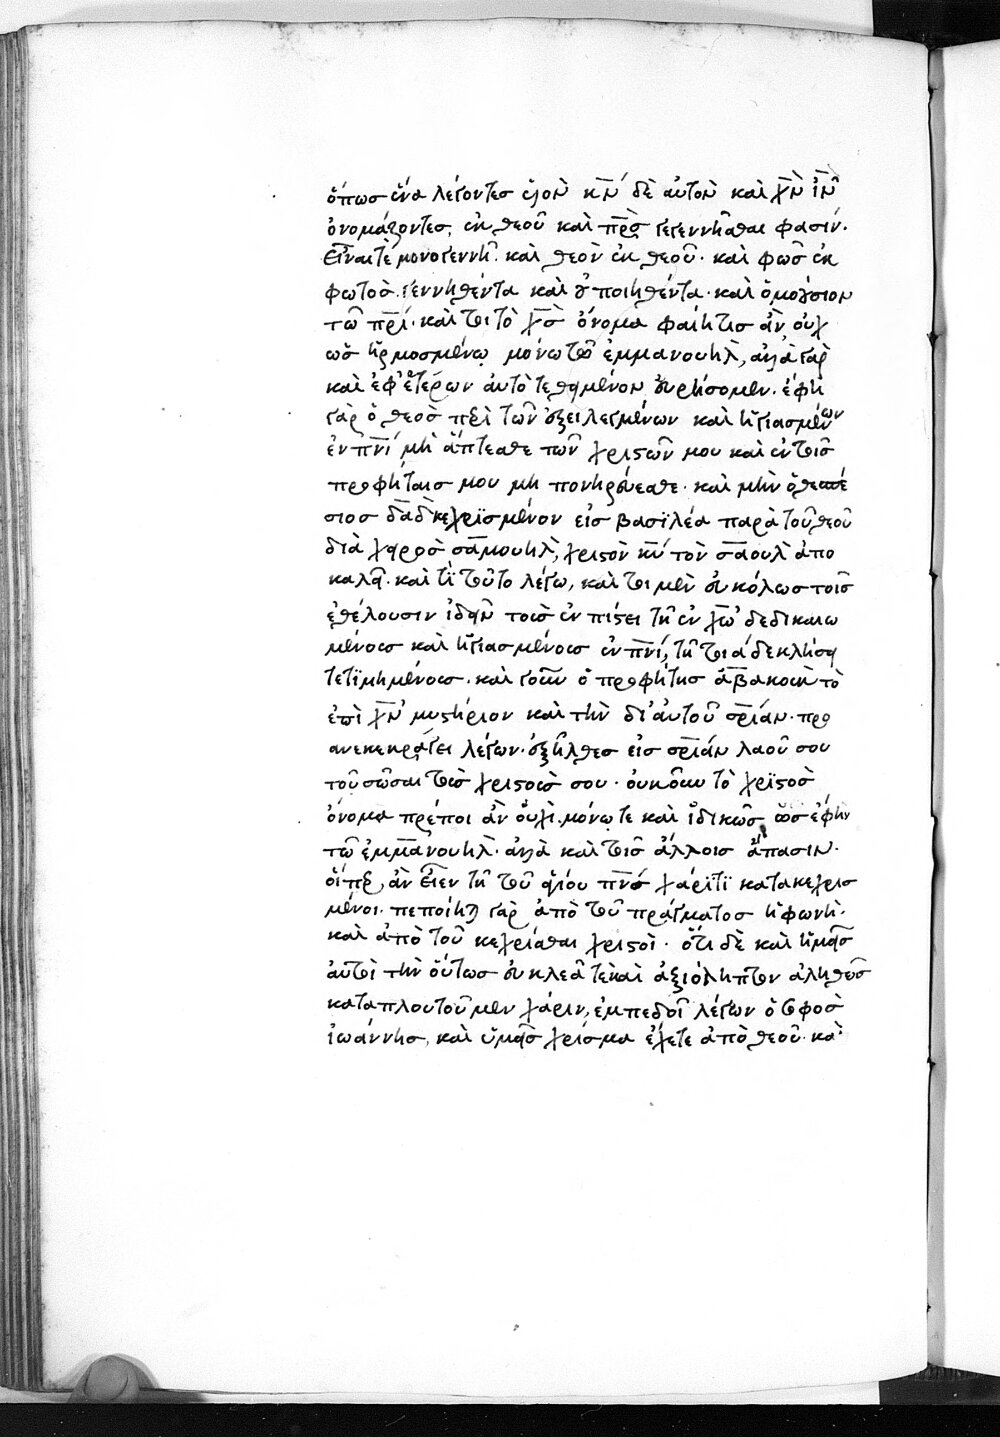 ὅπωσ ἕνα λέγοντεσ υἱὸν κν̅ δὲ αὐτὸν καὶ χν̅ ιν̅
ὀνομάζοντεσ, ἐκ θεοῦ καὶ πρσ̅ γεγεννῆσθαι φασίν.
εἶναί τε μονογεννῆ. καὶ θεὸν ἐκ θεοῦ. καὶ φῶσ ἐκ
φωτόσ. γεννηθέντα καὶ οὐ ποιηθέντα. καὶ ὁμοούσιον
τῶ πρι̅. καὶ τοι τὸ χσ̅ ὄνομα φαίη τισ ἂν οὐχ
ὡσ ἡρμοσμένω μόνω τῶ ἐμμανουὴλ, ἀλλὰ γὰρ
καὶ ἐφ' ἑτέρων αὐτὸ τεθειμένον εὑρήσομεν. ἔφη
γὰρ ὁ θεὸσ περὶ τῶν ἐξειλεγμένων καὶ ἡγιασμένων
ἐν πνι̅ μὴ ἅπτεσθε τῶν χριστῶν μου καὶ ἐν τοῖσ
προφήταισ μου μὴ πονηρεύεσθε. καὶ μὴν ὁ θεσπέ
σιοσ δα̅δ κεχρϊσμένον εἰσ βασϊλέα παρὰ τοῦ θεοῦ
διὰ χειρὸσ σαμουὴλ, χριστὸν κυ̅ τὸν σαοὺλ ἀπο
καλεῖ. καὶ τί τοῦτο λέγω, καὶ τοι μὲν εὐκόλωσ τοῖσ
ἐθέλουσιν ἰδεῖν τοὺσ ἐν πίστει τῆ ἐν χω̅ δεδικαιω
μένουσ καὶ ἡγιασμένουσ ἐν πνι̅, τῆ τοιᾶδε κλήσει
τετϊμημένουσ. καὶ γοῦν ὁ προφήτησ ἀβακοὺμ τὸ
ἐπὶ χν̅ μυστήριον καὶ τὴν δι' αὐτοῦ σρίαν. προ
ανεκεκράγει λέγων. ἐξῆλθεσ εἰσ σρίαν λαοῦ σου
τοῦ σῶσαι τοὺσ χριστούσ σου. οὐκοῦν τὸ χρϊστὸσ
ὄνομα πρέποι ἂν οὐχὶ μόνω τε καὶ ἰδικῶσ ὡσ ἔφην
τῶ ἐμμανουὴλ. ἀλλὰ καὶ τοῖσ ἄλλοισ ἅπασιν.
οἵπερ ἂν εἶεν τῆ τοῦ ἁγίου πνσ̅ χάριτϊ κατακεχρισ
μένοι. πεποίηται γὰρ ἀπὸ τοῦ πράγματοσ ἡ φωνὴ.
καὶ ἀπὸ τοῦ κεχρίσθαι χριστοὶ. ὅτι δὲ καὶ ἡμεῖσ
αὐτοὶ τὴν οὕτωσ εὐκλεᾶ τε καὶ ἀξιόληπτον ἀληθῶσ
καταπλουτοῦμεν χάριν, ἐμπεδοῖ λέγων ὁ σοφὸσ
ἰωάννησ, καὶ ὑμεῖσ χρίσμα ἔχετε ἀπὸ θεοῦ. καὶ